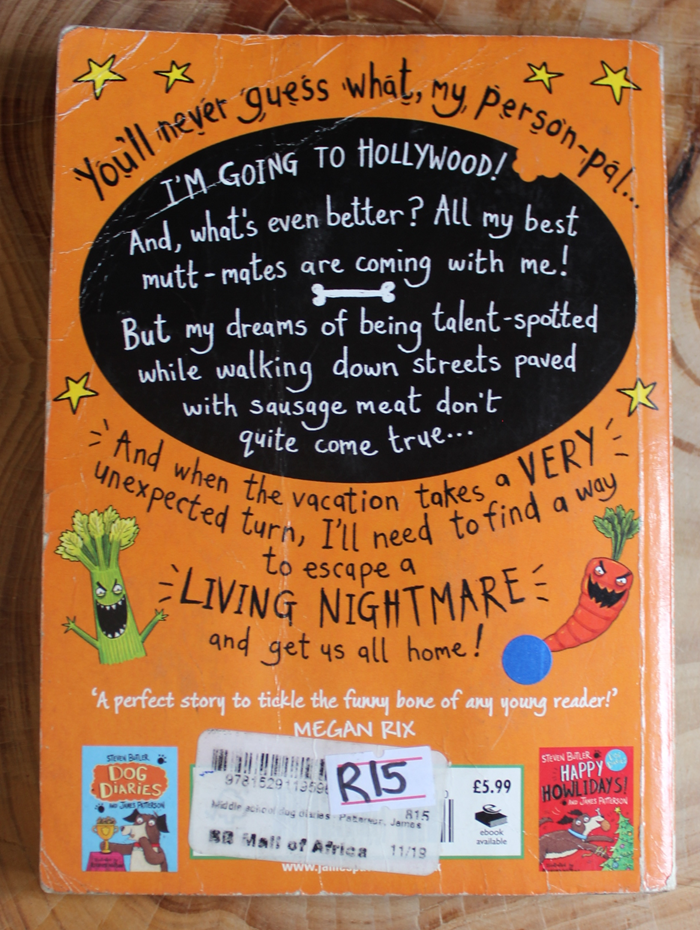 You'll never guess what, my person-pal...
I'M GOING TO HOLLYWOOD!
And, what's even better? All my best
mutt-mates are coming with me!
But my dreams of being talent-spotted
while walking down streets paved
with sausage meat don't
quite come true...
And when the vacation takes a VERY
unexpected turn, I'll need to find a way
to escape a
LIVING NIGHTMARE
and get us all home!
'A perfect story to tickle the funny bone of any young reader!'
MEGAN RIX
STEVEN BUTLER
DOG
DIARIES
AND JAMES PATTERSON
R15
815
BB Mall of Africa 11/19
£5.99
ebook
available
STEVEN BUTLER
HAPPY
HOWLIDAYS!
AND JAMES PATTERSON